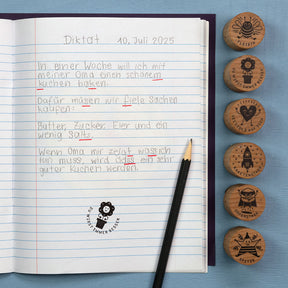 Diktat 10. Juli 2025
In einer Woche will ich mit
meiner Oma einen schönem
kuchen baken.
Dafür müsen wir fiele Sachen
kaufen:
Butter, Zucker, Eier und ein
wenig Salts.
Wenn Oma mir zeigt was ich
tun muss, wird dass ein sehr
guter Kuchen werden.
DU WIRST IMMER BESSER